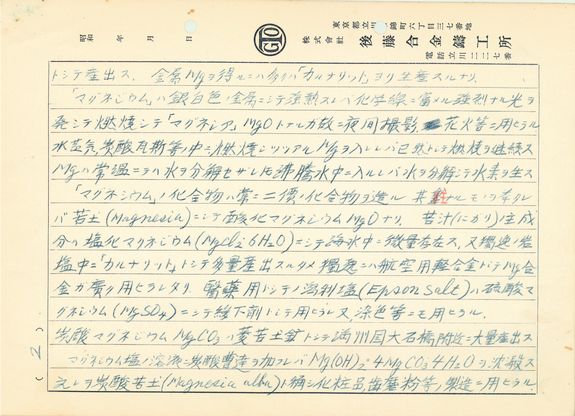 東京都立川 錦町六丁目三七番地
株式會社 後藤合金鑄工所
電話立川二二七番
昭和 年 月 日
GTO
トシテ産出ス、金属Mgヲ得ルニハ多クハ「カルナリット」ヨリ生産スルナリ.
「マグネシウム」ハ銀白色ノ金属ニシテ強熱スレバ化学線ニ富メル強烈ナル光ヲ
発シテ燃焼シテ「マグネシア」MgOトナルカ故ニ夜間撮影 花火等ニ用ヒラル
水蒸気、炭酸瓦斯等ノ中ニ燃焼シツツアルMgヲ入レバ已然トシテ燃焼ヲ継続ス
Mgハ常温ニテハ水ヲ分解セザルモ沸騰水中ニ入レバ水ヲ分解シテ水素ヲ生ス
「マグネシウム」ノ化合物ハ常ニ二價ノ化合物ヲ造ル 其 主ナルモノヲ挙グレ
バ苦土(Magnesia)ニシテ酸化マグネシウムMgOナリ. 苦汁(にがり)ノ主成
分ハ塩化マグネシウム(MgCl₂6H₂O)ニシテ海水中ニ微量存在ス,又獨逸ノ岩
塩中ニ「カルナリット」トシテ多量産出スルタメ獨逸ニハ航空用軽合金トシテMg合
金ガ廣ク用ヒラレタリ. 醫藥用トシテノ瀉利塩(Epson Salt)ハ硫酸マ
グネシウム(MgSO₄)ニシテ緩下劑トシテ用ヒラレ又染色等ニモ用ヒラル.
炭酸マグネシウムMgCO₃ハ菱苦土鉱トシテ満洲国大石橋附近ニ大量産出ス
マグネシウム塩ノ溶液ニ炭酸曹達ヲ加フレバMg(OH)₂4MgCO₃4H₂Oヲ沈澱ス
之レヲ炭酸苦土(Magnesia alba)ト稱シ化粧品歯磨粉等ノ製造ニ用ヒラル
(2)